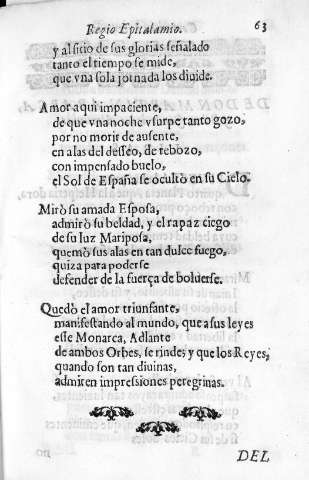 Regio Epitalamio. 63
y al sitio de sus glorias señalado
tanto el tiempo se mide,
que vna sola jornada los diuide.
Amor aqui impaciente,
de que vna noche vsurpe tanto gozo,
por no morir de ausente,
en alas del desseo, de rebozo,
con impensado buelo,
el Sol de España se ocultò en su Cielo.
Mirò su amada Esposa,
admirò su beldad, y el rapaz ciego
de su luz Mariposa,
quemò sus alas en tan dulce fuego,
quiza para poderse
defender de la fuerça de boluerse.
Quedò el amor triunfante,
manifestando al mundo, que a sus leyes
este Monarca, Adlante
de ambos Orbes, se rinde; y que los Reyes,
quando son tan diuinas,
admiten impressiones peregrinas.
DEL